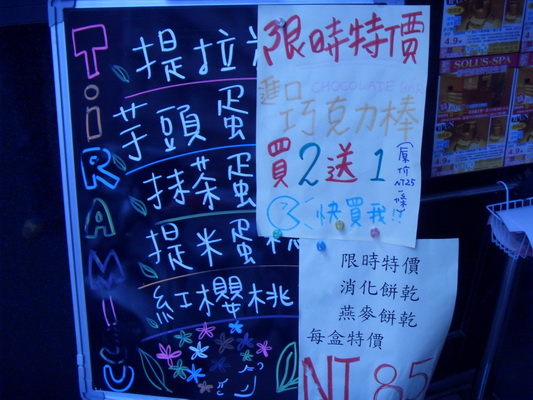 TiRAMiSU
提拉
芋頭蛋
抹茶蛋
提米蛋糕
紅櫻桃
限時特價
進口 CHOCOLATE BAR
巧克力棒
買2送1
(原价NT25一條)
快買我!!
限時特價
消化餅乾
燕麥餅乾
每盒特價
NT 85
SOLUS-SPA
4.9
4.9